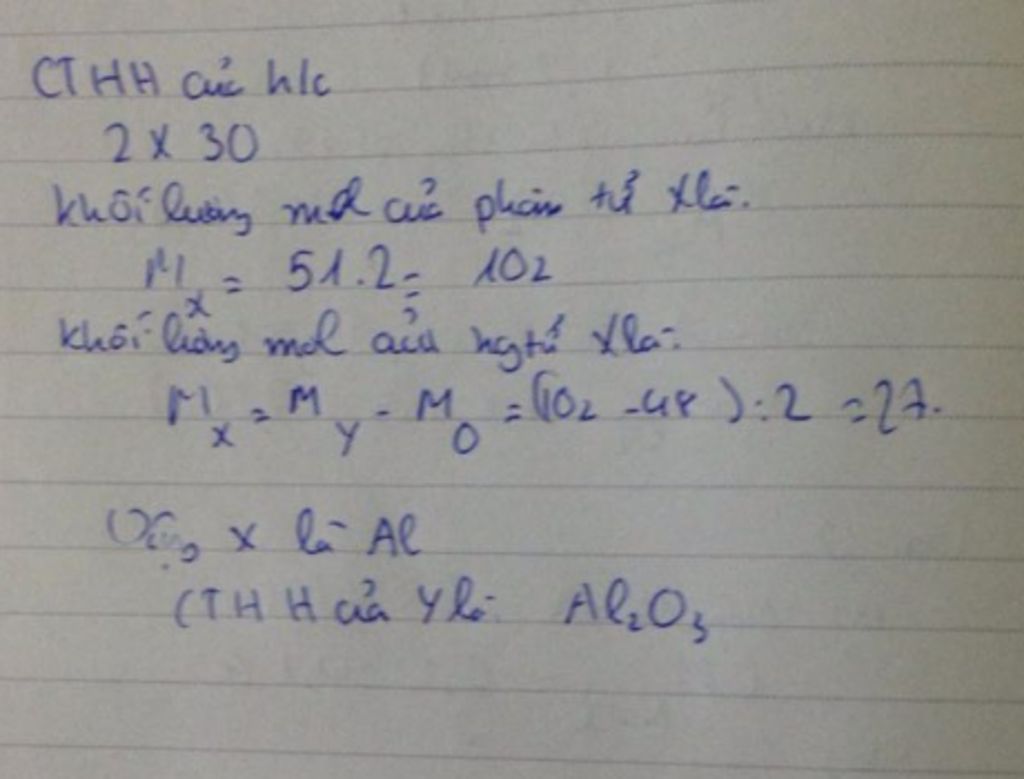 CTHH của h/c
2 X 3O
khối lượng mol của phân tử X là:
M_X = 51.2 = 102
khối lượng mol của ngtử X là:
M_X = M_Y - M_O = (102 - 48) : 2 = 27.
Vậy X là Al
CTHH của Y là: Al₂O₃